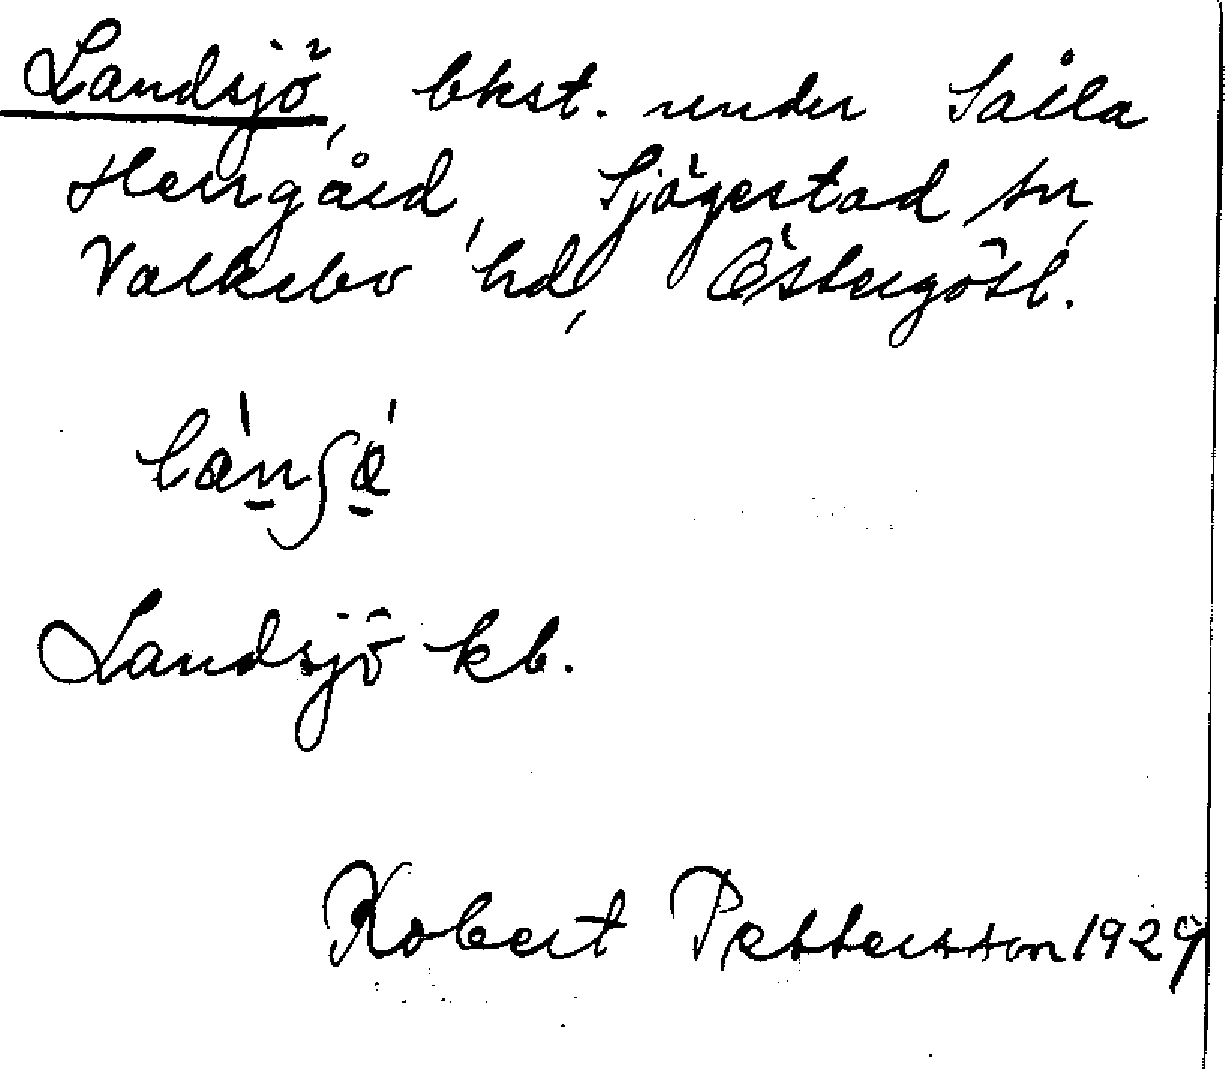 Landsjö, bkst. under Såila
Herrgård, Sjögestad sn,
Valkebo hd, Östergötl.
Landsjö kb.
Robert Pettersson 1929